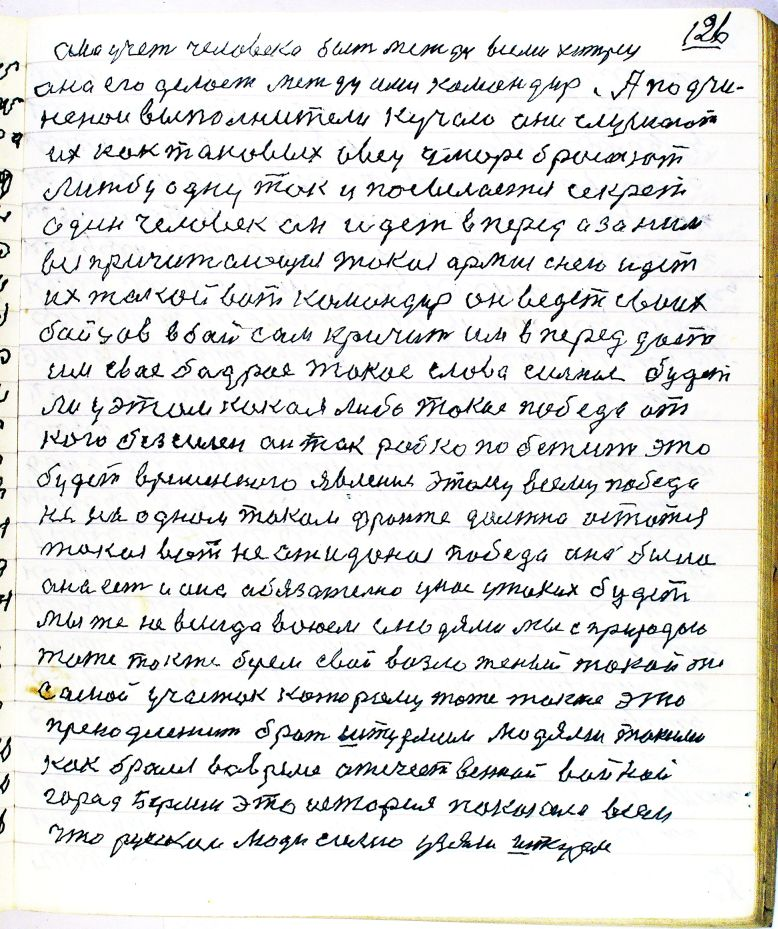 126
она учет человека быт между всеми хитрец
она его делает между ими командир. А подчи-
ненои выполнители кучаю они слушают
их как таковых овец у море бросают
либу одну так и посвылается секрет
один человек он идет вперед а за ним
вы причитающия такая армия с нею идет
их такой вот командир он ведет своих
бойцов в бой сам кричит им вперед дает
им свае бадрае такое слова силная будет
ли у этом какая либо такае победа от
кого безсилен он так робко побежит это
будет временного явления этому всему победа
на одном таком фронте должна остатся
такая вот не ожиданая победа она была
она ест и она обязателно у нас у таких будет
мы же не всегда воюем с людями мы с природою
тоже также берем свой возложеный такой же
самой участок которому тоже также это
преподležit брат штурмим людями такими
как брали во время отечественной войной
город Берлин это история показала всем
что руския люди силно взяли штурм